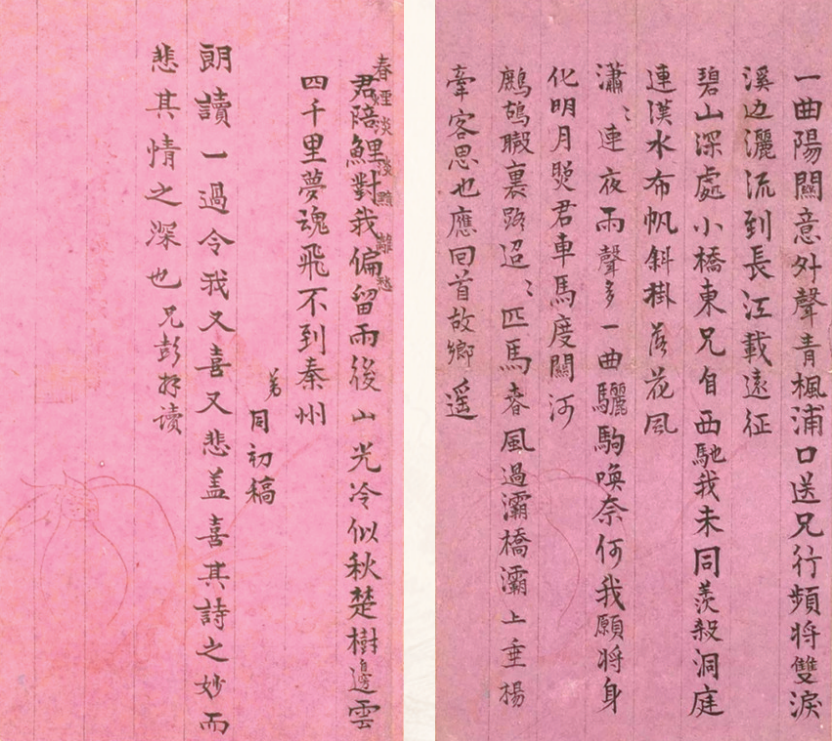 一曲陽關意外聲青楓浦口送兄行頻將雙淚
溪边灑流到長江載遠征
碧山深處小橋東兄自西馳我未同羨殺洞庭
連漢水布帆斜掛落花風
瀟〻連夜雨聲多一曲驪駒喚奈何我願將身
化明月照君車馬度關河
鷓鴣聲裏路迢〻匹馬春風過灞橋灞上垂楊
牽客思也應回首故鄉遥
春煙淡淡黯離愁
君陪鯉對我偏留雨後山光冷似秋楚樹邊雲
四千里夢魂飛不到秦州
弟同初稿
朗讀一過令我又喜又悲盖喜其詩之妙而
悲其情之深也兄彭拜讀